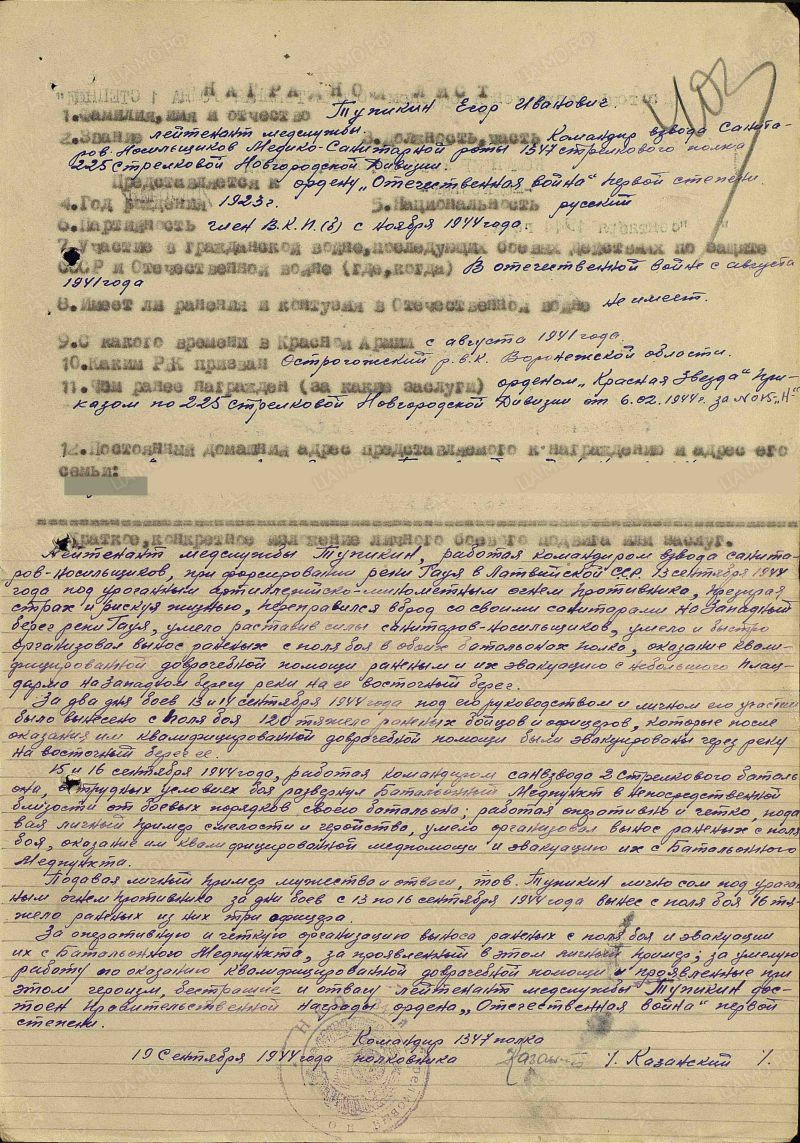 НАГРАДНОЙ ЛИСТ
403
1.Фамилия,имя и отчество Тупикин Егор Иванович
2.Звание лейтенант медслужбы. 3.Должность,часть Командир взвода санита-
ров-носильщиков Медико-Санитарной роты 1347 стрелкового полка
225 Стрелковой Новгородской Дивизии.
Представляется к ордену „Отечественная война" первой степени
4.Год рождения 1923 г. 5.Национальность русский
6.Партийность член В.К.П.(б) с ноября 1944 года.
7.Участие в гражданской войне,последующих боевых действиях по защите
СССР и Отечественной войне (где,когда) В отечественной войне с августа
1941 года
8.Имеет ли ранения и контузия в Отечественной войне не имеет.
9.С какого времени в Красной Армии с августа 1941 года.
10.Каким РВК призван Острогожский р.в.к. Воронежской области.
11.Чем ранее награжден (за какие заслуги) орденом „Красная Звезда" при-
казом по 225 Стрелковой Новгородской Дивизии от 6.02.1944 г. за №045„Н"
12.Постоянный домашний адрес представляемого к награждению и адрес его
семьи:
Краткое,конкретное изложение личного боевого подвига или заслуг.
Лейтенант медслужбы Тупикин, работая командиром взвода санита-
ров-носильщиков, при форсировании реки Гауя в Латвийской ССР. 13 сентября 1944
года под ураганным артиллерийско-минометным огнем противника, презирая
страх и рискуя жизнью, переправился вброд со своими санитарами на Западный
берег реки Гауя, умело расставив силы санитаров-носильщиков, умело и быстро
организовал вынос раненых с поля боя в обоих батальонах полка, оказание квали-
фицированной доврачебной помощи раненым и их эвакуацию с небольшого плац-
дарма на Западном берегу реки на ее восточный берег.
За два дня боев 13 и 14 сентября 1944 года под его руководством и личном его участии
было вынесено с поля боя 120 тяжело раненых бойцов и офицеров, которые после
оказания им квалифицированной доврачебной помощи были эвакуированы через реку
на восточный берег ее.
15 и 16 сентября 1944 года, работая командиром санвзвода 2 Стрелкового баталь-
она, в трудных условиях боя развернул Батальонный Медпункт в непосредственной
близости от боевых порядков своего батальона; работая оперативно и четко, пода-
вая личный пример смелости и геройства, умело организовал вынос раненых с поля
боя, оказание им квалифицированной медпомощи и эвакуацию их с Батальонного
Медпункта.
Подавая личный пример мужества и отваги, тов. Тупикин лично сам под ураган-
ным огнем противника за дни боев с 13 по 16 сентября 1944 года вынес с поля боя 16 тя-
жело раненых из них три офицера.
За оперативную и четкую организацию выноса раненых с поля боя и эвакуации
их с Батальонного Медпункта, за проявленный в этом личный пример; за умелую
работу по оказанию квалифицированной доврачебной помощи и проявленные при
этом героизм, бестрашие и отвагу лейтенант медслужбы Тупикин дос-
тоен правительственной награды ордена „Отечественная война" первой
степени.
Командир 1347 полка
19 Сентября 1944 года полковника Казанский /. Казанский /.